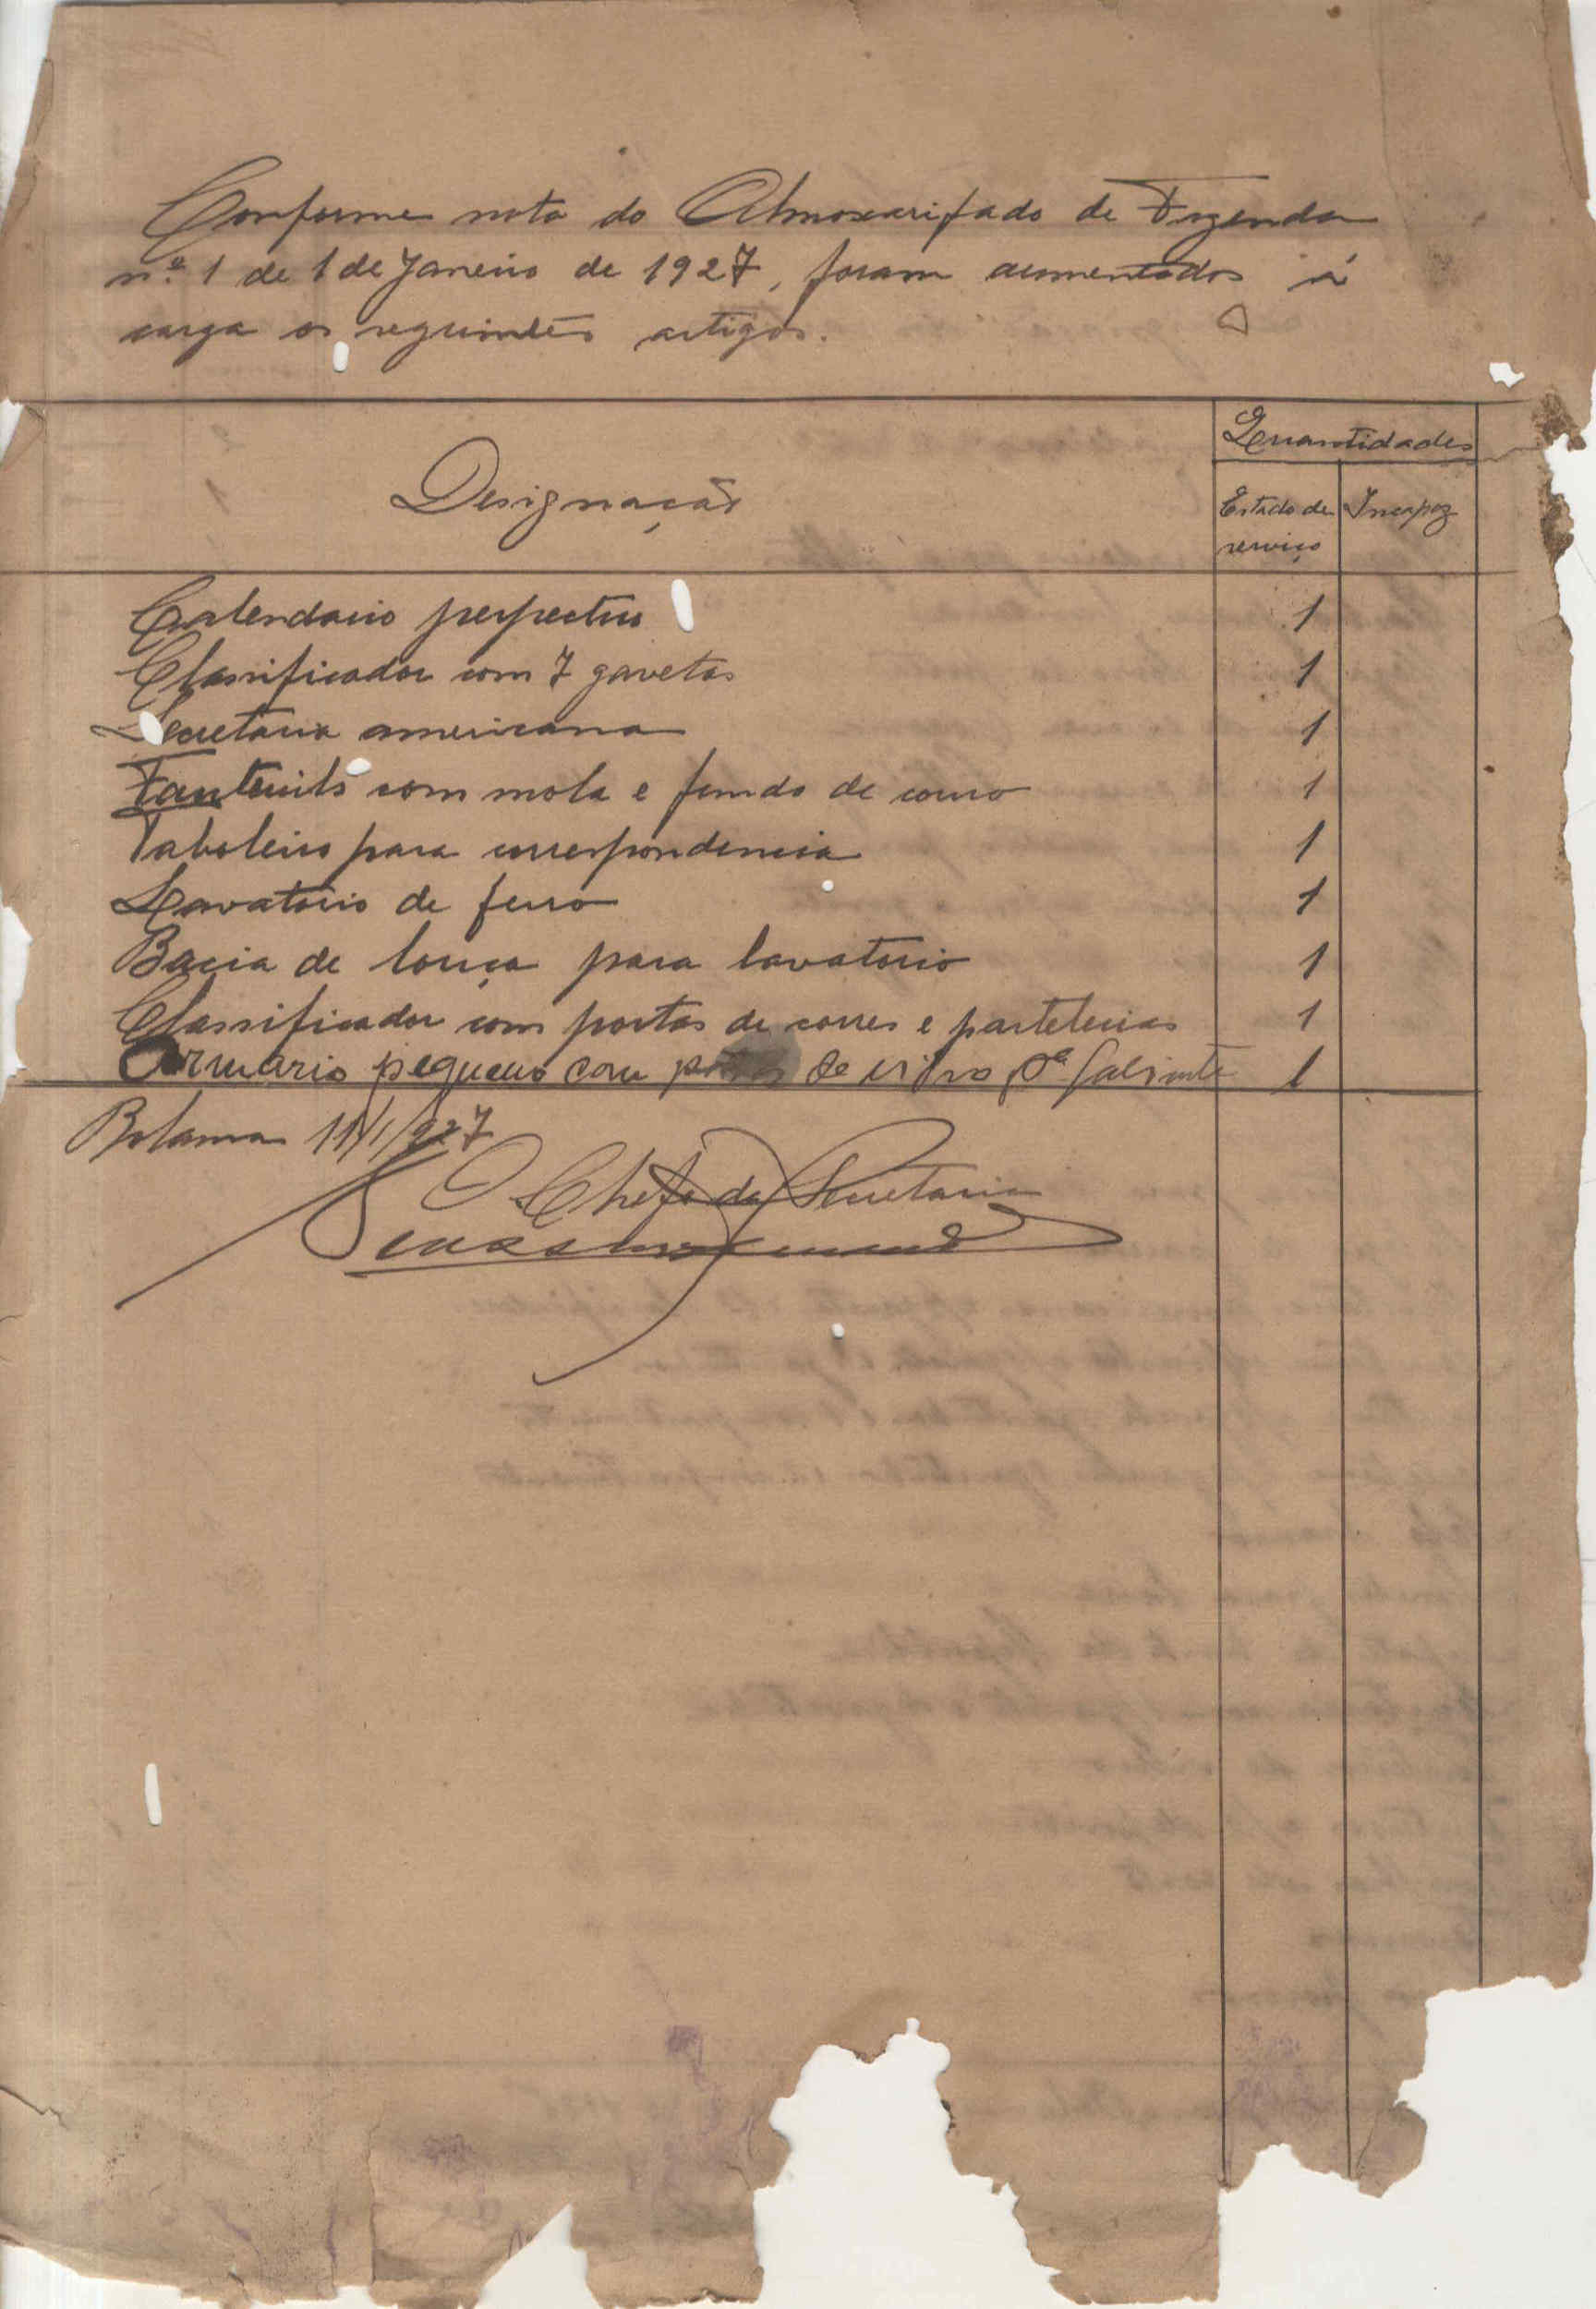 Conforme nota do Almoxarifado de Fazenda
nº 1 de 1 de Janeiro de 1927, foram aumentados á
carga os seguintes artigos.
Quantidades
Designação
Estado de serviço
Incapaz
Calendario perpectuo 1
Classificador com 7 gavetas 1
Secretaria americana 1
Fauteuils com mola e fundo de couro 1
Taboleiro para correspondencia 1
Lavatorio de ferro 1
Bacia de louça para lavatorio 1
Classificador com portas de correr e partelerias 1
Armario pequeno com portas de vidro pª Gabinete 1
Bolama 11/1/927
O Chefe da Secretaria